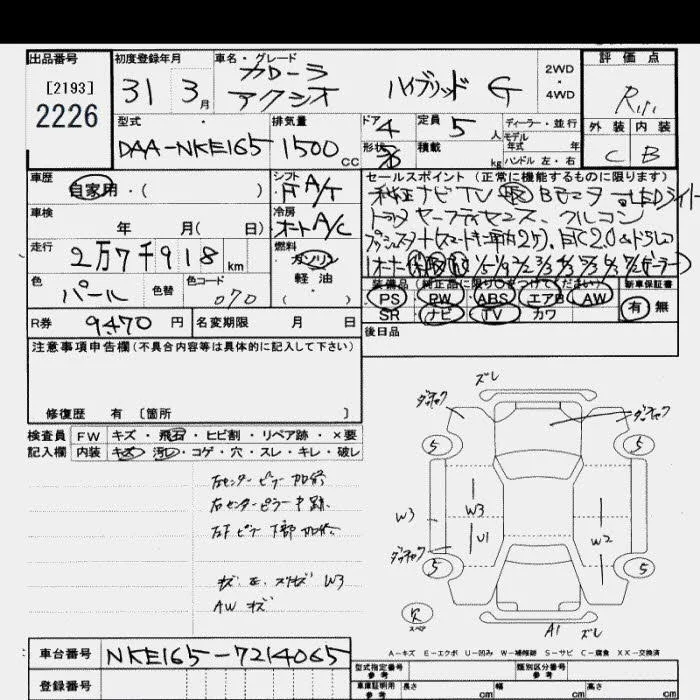 出品番号
[2193]
2226
初度登録年月
31 3月
車名・グレード
カローラ
アクシオ
ハイブリッド G
2WD
・
4WD
評価点
R
外装 内装
C B
型式
DAA-NKE165
排気量
1500 cc
ドア
4
形状
定員
5 人
積載
kg
ディーラー・並行
モデル
年式 年
ハンドル 左・右
車歴
自家用・( )
シフト
F A/T
セールスポイント (正常に機能するものに限ります)
純正ナビTV Bモニター LEDライト
トヨタセーフティセンス、クルコン
プッシュスタート スマートキー 2ケ、ETC2.0 ドラレコ
1オーナー
車検
年 月( 日)
冷房
オートA/C
走行
2万7千918 km
燃料
ガソリン
軽油
( )
色
パール
色替
色コード
070
装備品 (純正品に限り○をつけてください)
PS PW ABS エアB AW
SR ナビ TV カワ
新車保証書
有 無
R券 9470 円
名変期限 月 日
後日品
注意事項申告欄(不具合内容等は具体的に記入して下さい)
修復歴 有 [箇所 ]
検査員
記入欄
FW キズ・飛石・ヒビ割・リペア跡・×要
内装 キズ・汚れ・コゲ・穴・スレ・キレ・破レ
右センターピラー 加修
右センターピラー
下部加修
W3
AW キズ
ズレ
5
5
W3
W3
U1
W2
5
5
欠
スペア
A1 ズレ
A-キズ E-エクボ U-凹み W-補修跡 S-サビ C-腐食 XX-交換済
車台番号 NKE165-7214065
登録番号
型式指定番号
参考
類別区分番号
参考
車庫証明用
参考
長さ cm 幅 cm 高さ cm